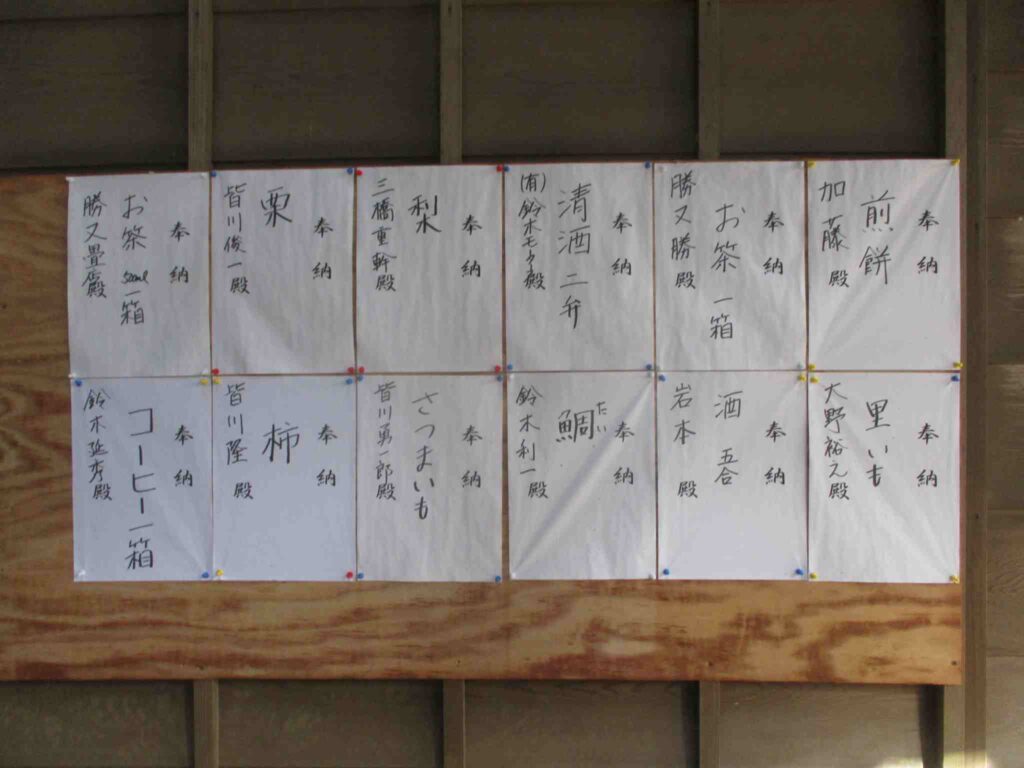 奉納
煎餅
加藤殿
奉納
お茶 一箱
勝又勝殿
奉納
清酒二弁
(有)鈴木モータ殿
奉納
梨
三橋重幹殿
奉納
栗
皆川俊一殿
奉納
お茶 一箱
勝又畳店殿
奉納
里いも
大野裕之殿
奉納
酒 五合
岩本殿
奉納
鯛
たい
鈴木利一殿
奉納
さつまいも
皆川勇一郎殿
奉納
柿
皆川隆殿
奉納
コーヒー一箱
鈴木延秀殿